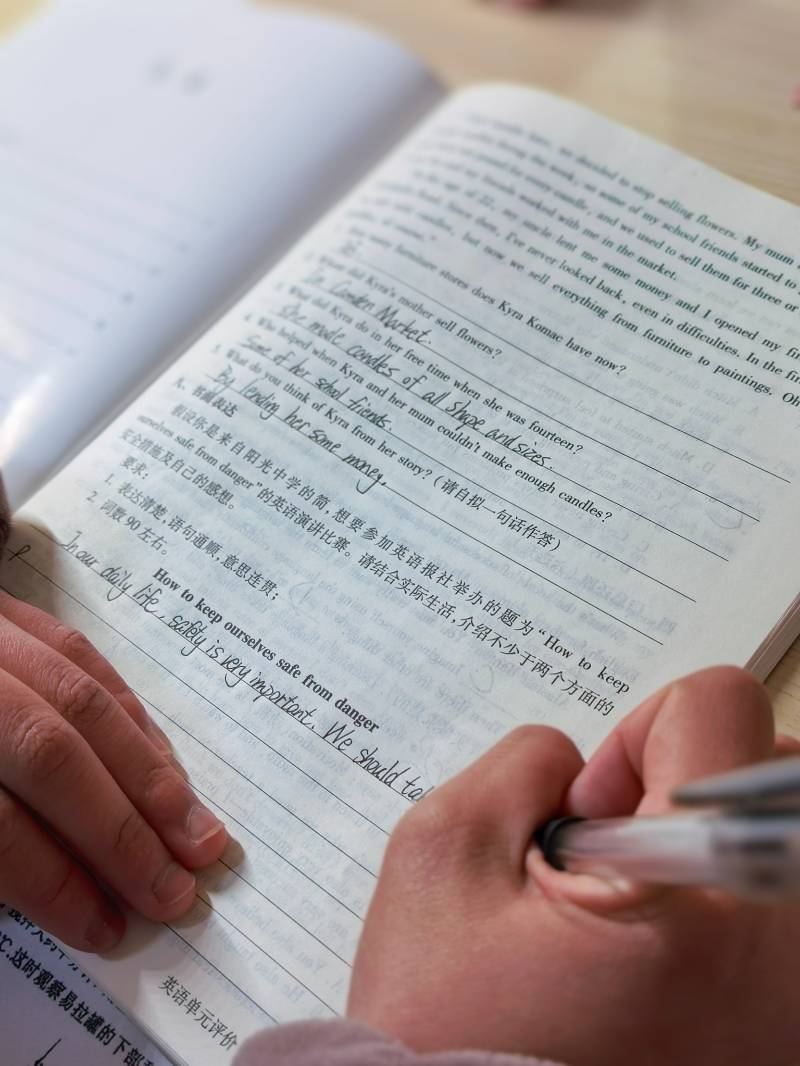 we decided to stop selling flowers. My mum
during the week, so some of my school friends started to
for every candle, and we used to sell them for three or
my friends worked with me in the market.
At the age of 22, my uncle lent me some money and I opened my fir
Since then, I've never looked back, even in difficulties. In the fir
candles, but now we sell everything from furniture to paintings. Oh
many furniture stores does Kyra Komac have now?
did Kyra's mother sell flowers?
In Camden Market.
3. What did Kyra do in her free time when she was fourteen?
She made candles of all shape and sizes.
4. Who helped when Kyra and her mum couldn't make enough candles?
Some of her school friends.
5. What do you think of Kyra from her story? (请自拟一句话作答)
By lending her some money.
书面表达
假设你是来自阳光中学的简,想要参加英语报社举办的题为“How to keep
ourselves safe from danger”的英语演讲比赛。请结合实际生活,介绍不少于两个方面的
安全措施及自己的感想。
要求:
1. 表达清楚,语句通顺,意思连贯;
2. 词数 90 左右。
How to keep ourselves safe from danger
In our daily life, safety is very important. We should ta
英语单元评价
℃,这时观察易拉罐的下部